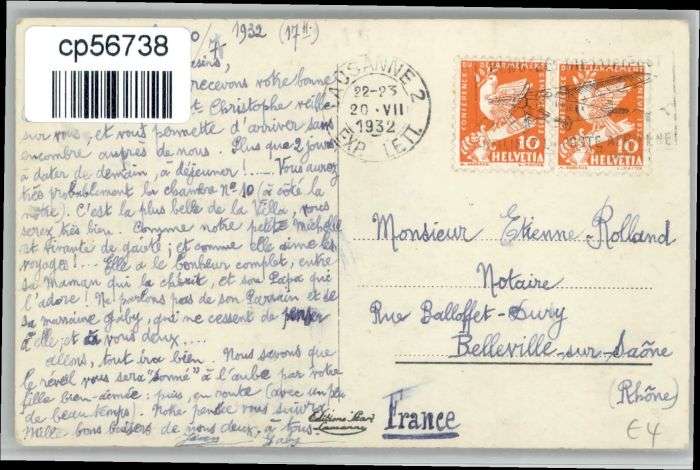 cp56738
1932 (17h.)
recevons votre bonne
Christophe veille
sur vous, et vous permette d'arriver sans
encombre auprès de nous. Plus que 2 jours
à dater de demain, à déjeuner!..... Vous aurez
très probablement la chambre N° 10 (à côté la
nôtre). C'est la plus belle de la Villa, vous
serez très bien. Comme notre petite Michelle
est vivante de gaieté; et comme elle aime les
voyages!... Elle a le bonheur complet, entre
sa Maman qui la chérit, et son Papa qui
l'adore! Ne parlons pas de son Parrain et de
sa marraine Gaby, qui ne cessent de penser
à elle et à vous deux....
allons, tout ira bien. Nous savons que
le réveil vous sera "sonné" à l'aube par votre
fille bien-aimée: puis, en route (avec un peu
de beau temps). Notre pensée vous suivra
Mille bons baisers de nous deux, à tous.
Gaby
Editions
LAUSANNE 2
22-23
20. VII
1932
EXP. LETT.
CONFERENCE DU DESARMEMENT
10
HELVETIA
10
HELVETIA
Monsieur Etienne-Rolland
Notaire
Rue Balloffet-Dury
Belleville-sur-Saône
(Rhône)
France
€4